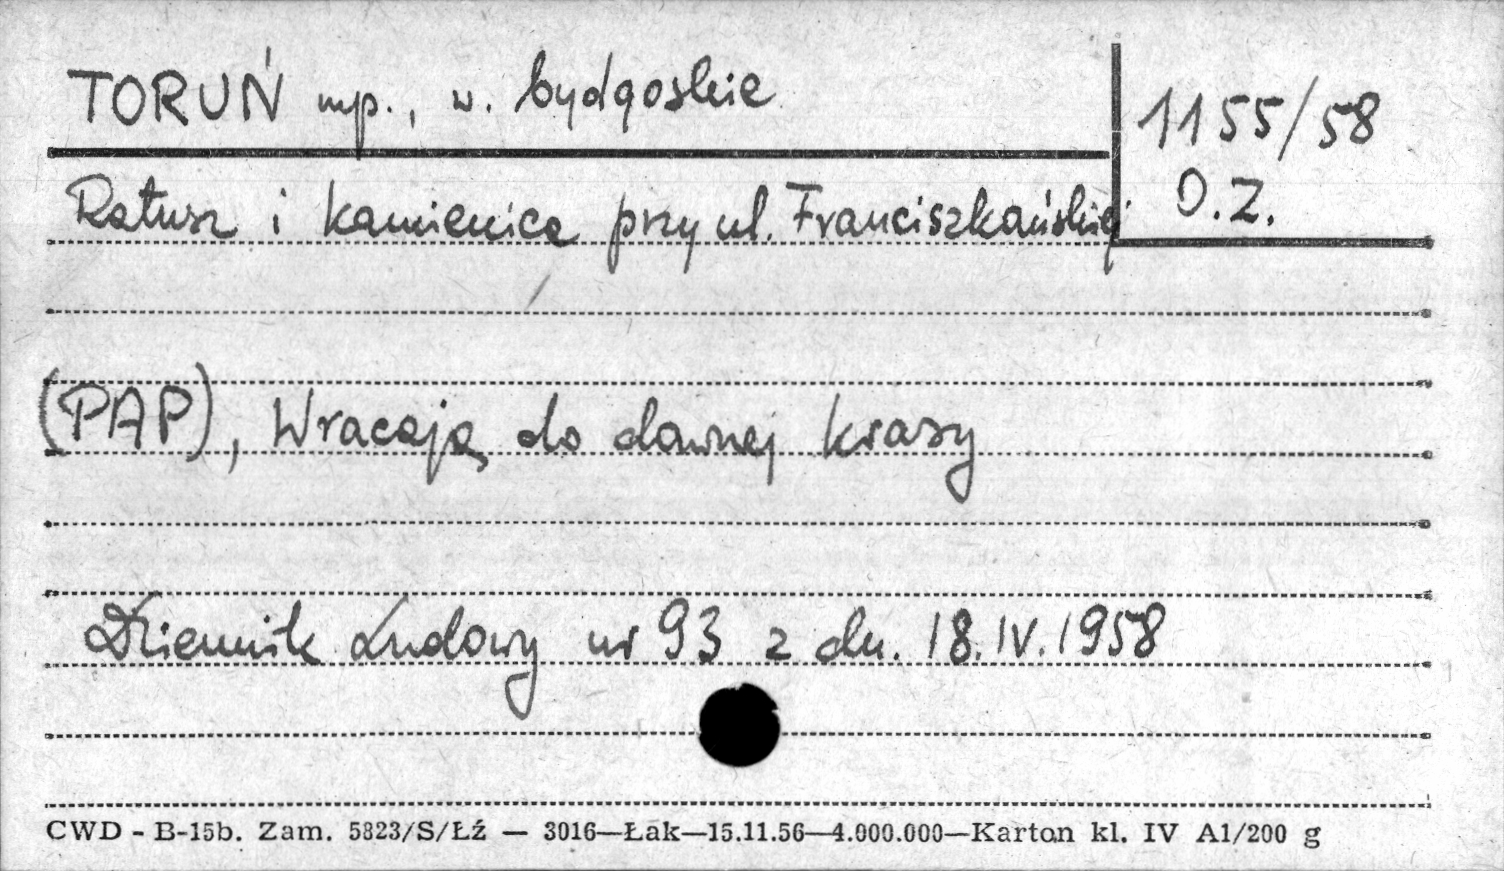 TORUŃ mp., w. bydgoskie
1155/58
O.Z.
Ratusz i kamienice przy ul. Franciszkańskiej
(PAP), Wracają do dawnej krasy
Dziennik Ludowy nr 93 z dn. 18.IV.1958
CWD - B-15b. Zam. 5823/S/Łź — 3016—Łak—15.11.56—4.000.000—Karton kl. IV A1/200 g